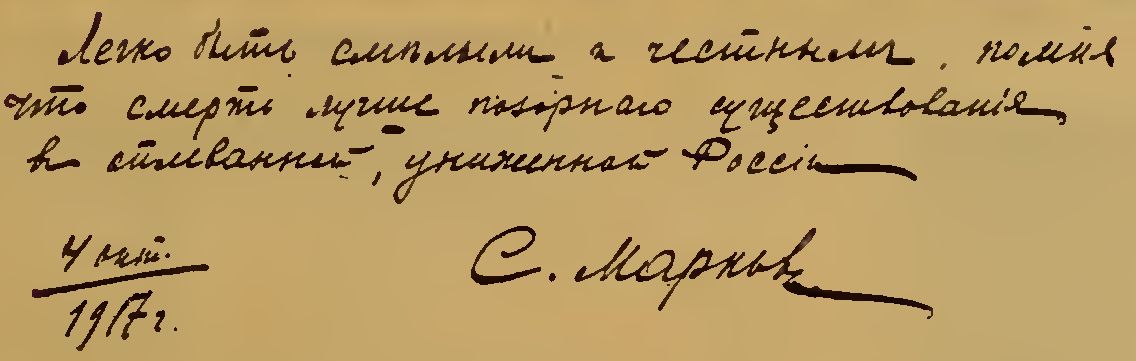 Легко быть смѣлыми и честными, помня
что смерть лучше позорнаго существованія
въ оплеванной, униженной Россіи
4 окт.
1917 г.
С. Марковъ